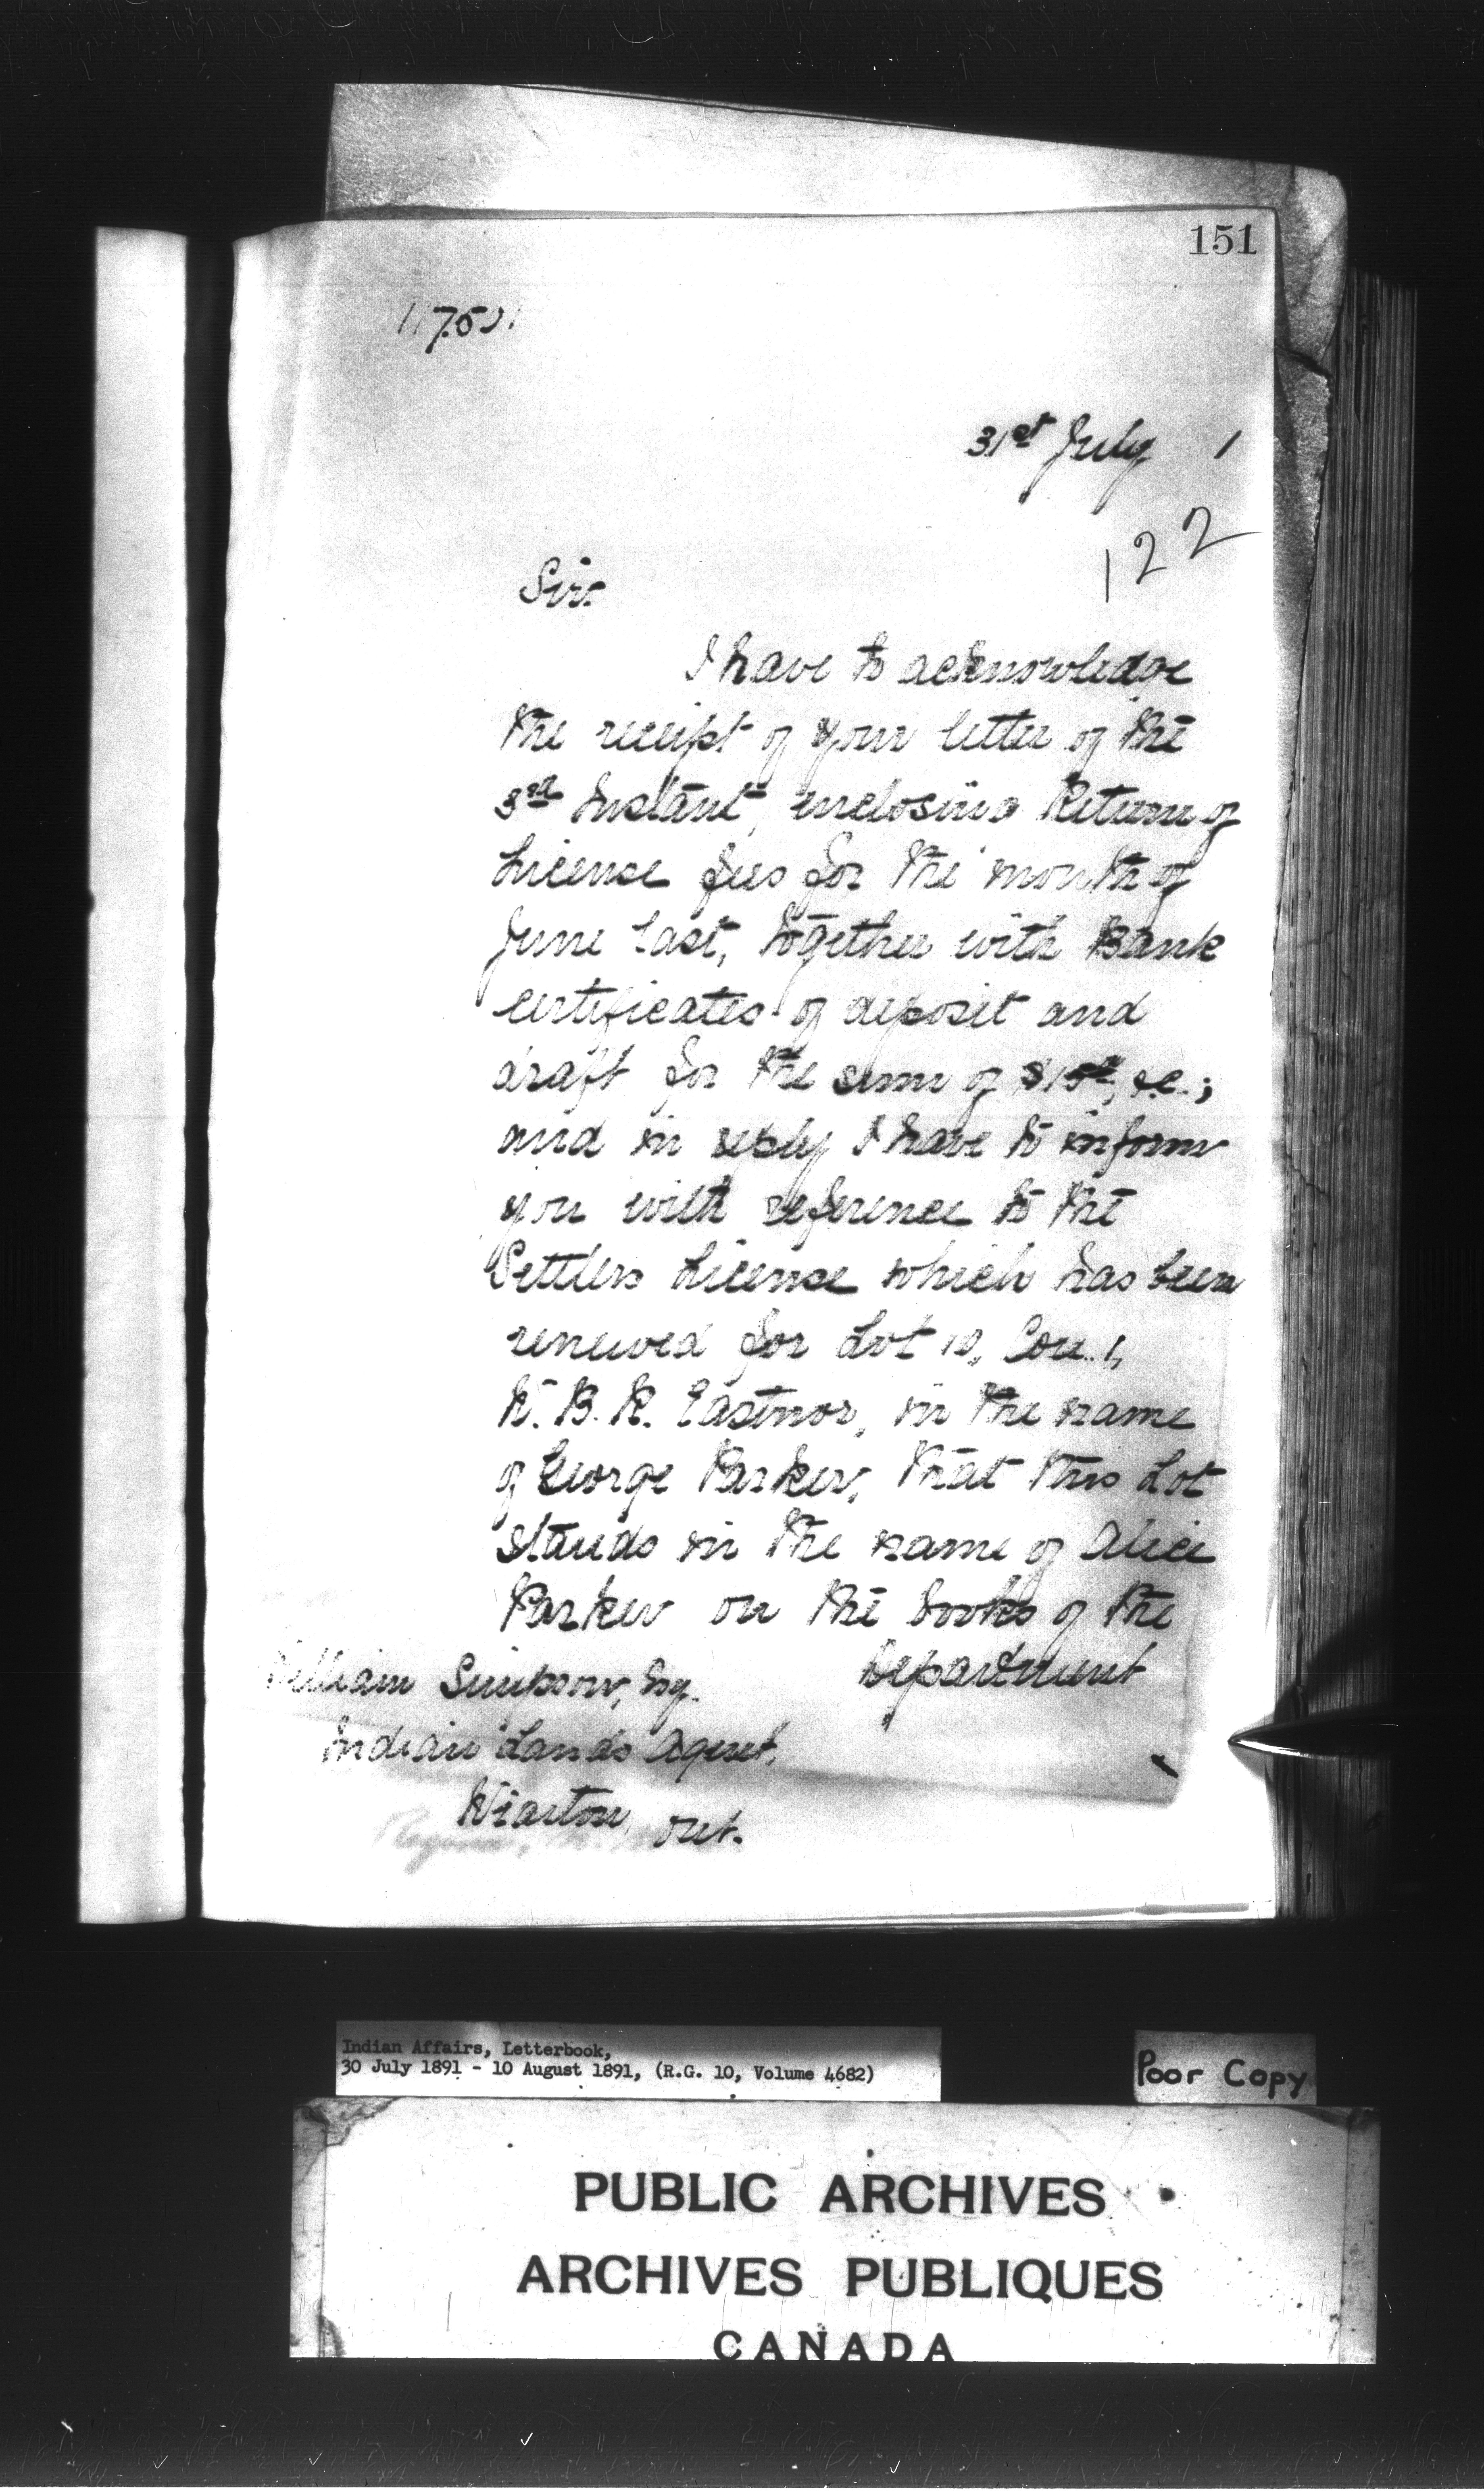 151
31st July 1
122
Sir.
I have to acknowledge
the receipt of your letter of the
3rd Instant, enclosing Return of
License fees for the month of
June last, together with Bank
certificates of deposit and
draft for the sum of &c.;
and in reply I have to inform
you with reference to the
Settlers License which has been
renewed for Lot 10, Con. 1,
W. B. R. Eastnor, in the name
of George Parker, that this Lot
stands in the name of Alice
Parker on the books of the
Department
William Simpson, Esq.
Indian Lands Agent,
Wiarton, Ont.
Indian Affairs, Letterbook,
30 July 1891 - 10 August 1891, (R.G. 10, Volume 4682)
Poor Copy
PUBLIC ARCHIVES
ARCHIVES PUBLIQUES
CANADA